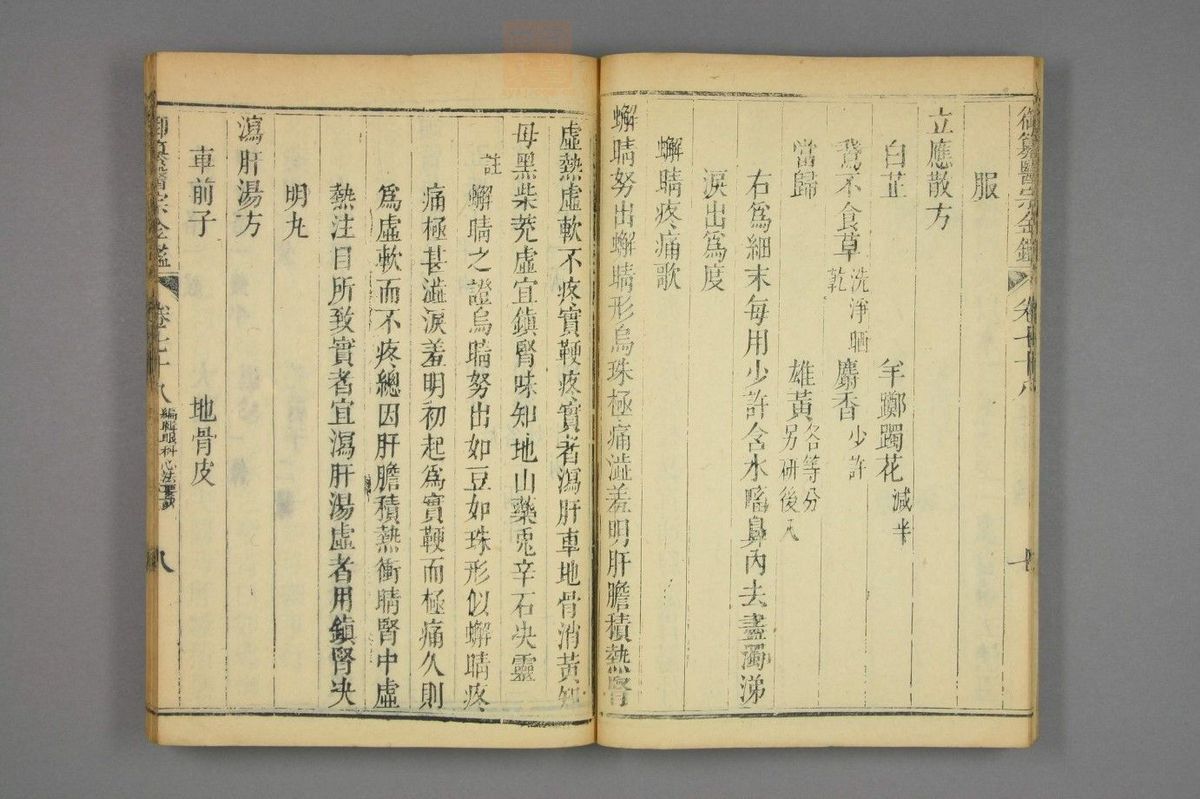 御纂醫宗金鑑 卷七十八
服
立應散方
白芷 羊躑躅花減半
鵞不食草洗淨晒乾 麝香少許
當歸 雄黃另研後入各等分
右爲細末每用少許含水㗜鼻內去盡濁涕
淚出爲度
蠏睛疼痛歌
蠏睛努出蠏睛形烏珠極痛澁羞明肝膽積熱腎
虛熱虛軟不疼實鞕疼實者瀉肝車地骨消黃知
母黑柴茺虛宜鎮腎味知地山藥兎辛石决靈
註蠏睛之證烏睛努出如豆如珠形似蠏睛疼
痛極甚澁淚羞明初起爲實鞕而極痛久則
爲虛軟而不疼總因肝膽積熱衝睛腎中虛
熱注目所致實者宜瀉肝湯虛者用鎮腎决
明丸
瀉肝湯方
車前子 地骨皮
御纂醫宗金鑑 卷七十八 編輯眼科心法要訣 八